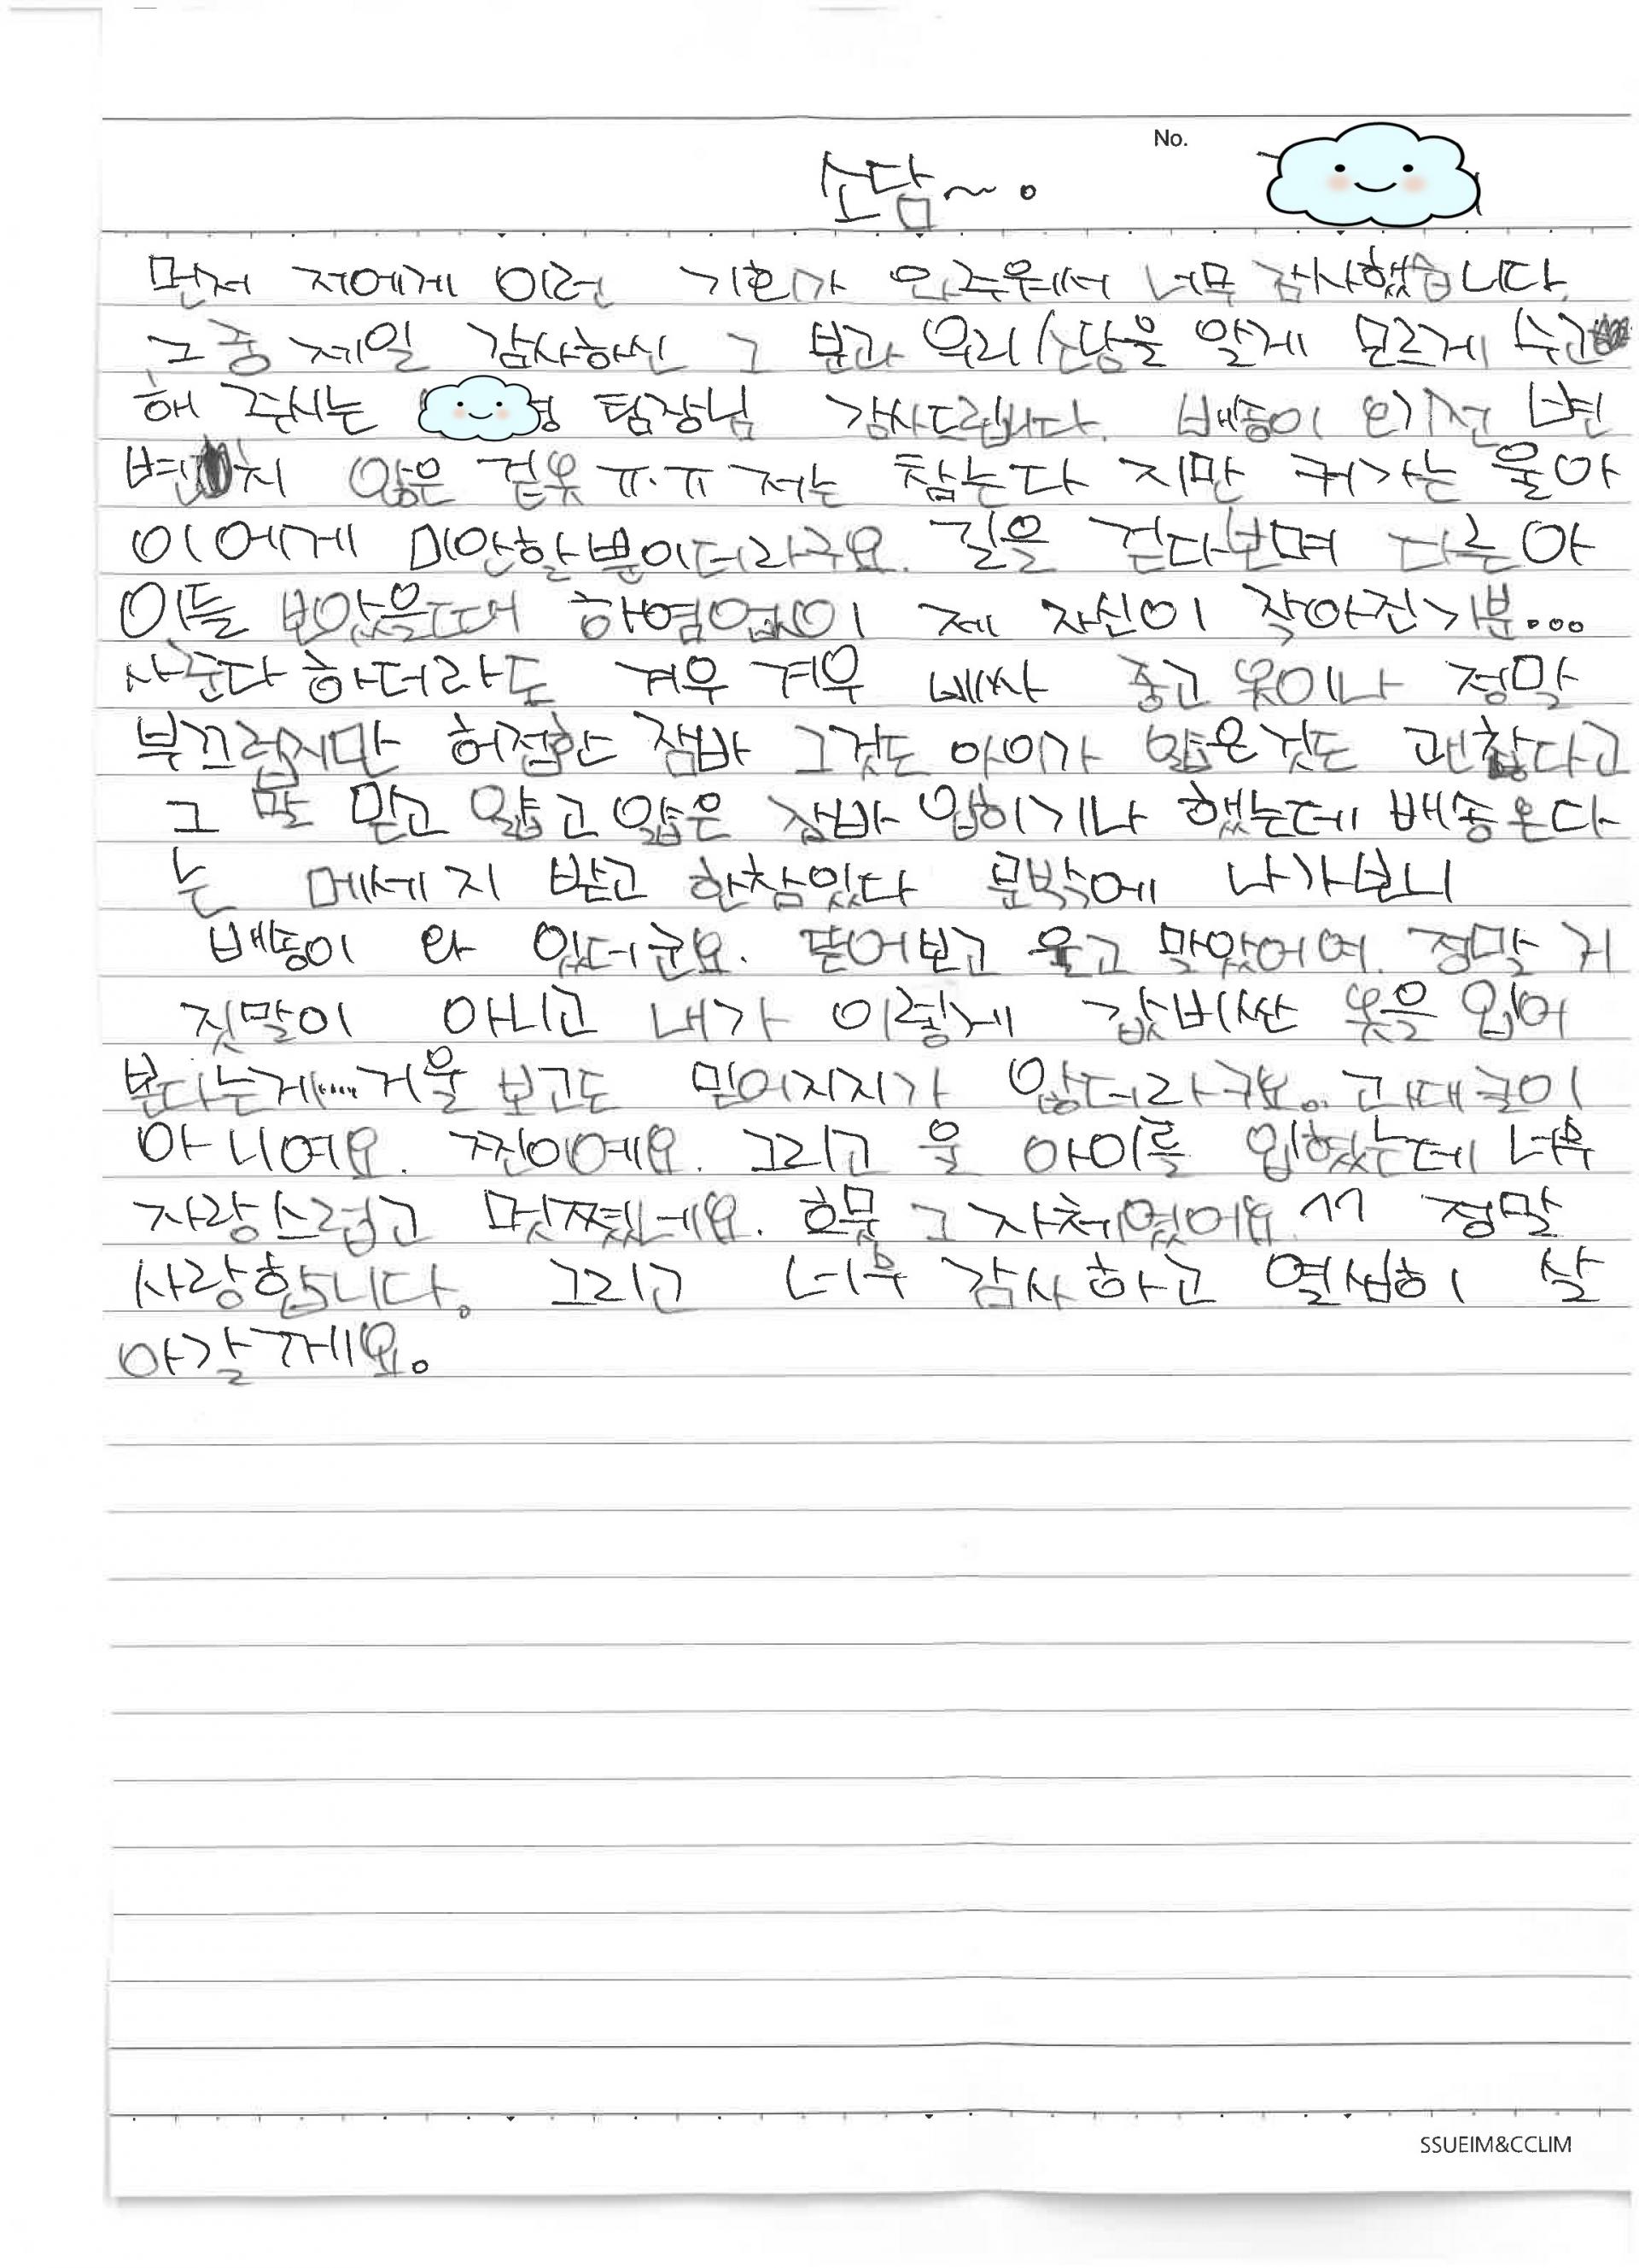 No.
소담~.
먼저 저에게 이런 기회가 와주워서 너무 감사했습니다.
그중 제일 감사하신 그 분과 우리 소담을 알게 모르게 수고
해 주시는 팀장님 감사드립니다. 배송이 오기전 변
변치 않은 겉옷 ㅠ.ㅠ 저는 참는다 지만 커가는 울아
이에게 미안할뿐이더라구요. 길을 걷다보며 다른아
이들 보았을때 하염없이 제 자신이 작아진기분...
사준다하더라도 겨우 겨우 베싸 중고 옷이나 정말
부끄럽지만 허접한 잠바 그것도 아이가 얇은것도 괜찮다고
그 말 믿고 얇고얇은 잠바 입히기나 했는데 배송온다
는 메세지 받고 한참있다 문밖에 나가보니
배송이 와 있더군요. 뜯어보고 울고 말았어여. 정말 거
짓말이 아니고 내가 이렇게 값비싼 옷을 입어
본다는게....거울 보고도 믿어지지가 않더라구요.. 과대글이
아니여요. 찐이예요. 그리고 울 아이를 입혔는데 너무
자랑스럽고 멋쪘네요. 흐뭇 그 자체였어요 ^^ 정말
사랑합니다. 그리고 너무 감사하고 열심히 살
아갈께요.
SSUEIM&CCLIM